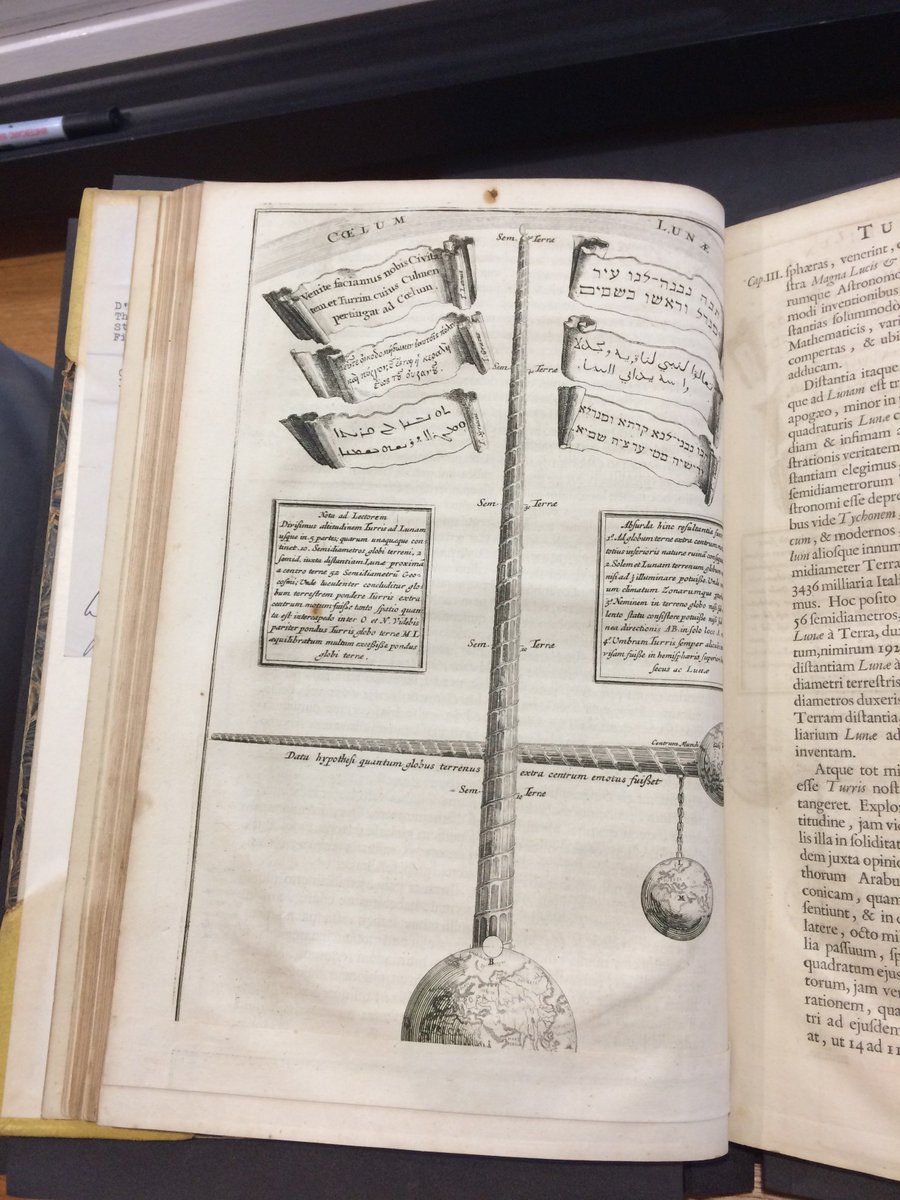 CŒLUM
LUNÆ
Venite faciamus nobis Civita
tem et Turrim cuius Culmen
pertingat ad Cœlum
δεῦτε οἰκοδομήσωμεν ἑαυτοῖς πόλιν
καὶ πύργον, οὗ ἔσται ἡ κεφαλὴ
ἕως τοῦ οὐρανοῦ.
הבה נבנה-לנו עיר
וראשו בשמים
تعالوا لنبني لنا قرية
راسه يداني السما
נבני לנא קרתא
שמיא
Sem. Terræ
Sem. Terræ
Sem. Terræ
Sem. Terræ
Sem. Terræ
Nota ad Lectorem
Divisimus altitudinem Turris ad Lunam
usque in 5 partes, quarum unaquæque con
tinet 10. Semidiametros globi terreni, 2
semid, iuxta distantiam Lunæ proximã
a centro terræ 52 Semidiametrũ Geo-
cosmi; Unde luculenter concluditur glo-
bum terrestrem pondere Turris extra
centrum motum fuiße tanto spatio quan
ta est intercapedo inter O et N. Videbis
pariter pondus Turris globo terræ M L
æquilibratum multum exceßiße pondus
globi terræ.
Absurda hinc resultantia
1º. Ad globum terræ extra centrum
totius inferioris naturæ ruinã
2. Solem et Lunam terrenum
nisi ad illuminare potuiße. Unde
um climatum Zonarumque
3º. Neminem in terreno globo nisi
lento statu consistere potuiße
nea directionis AB. in solo loco
4º. Umbram Turris semper
visam fuiße in hemisphærio
secus ac Lunæ
Centrum Mundi
Data hypothesi quantum globus terrenus extra centrum emotus fuißet
B
L
M
TU
Cap. III.
sphæras, venerint,
stra Magna Lucis &
rumque Astronomo
modi inventionibus
stantias solummodò
Mathematicis, vari
compertas, & ubi
adducam.
Distantia itaque
que ad Lunam est tr
apogæo, minor in
quadraturis Lunæ
diam & infimam a
strationis veritatem
stantiam elegimus
semidiametrorum
stronomi esse depre
bus vide Tychonem
cum, & modernos
lum aliosque innum
midiameter Terra
3436 milliaria Ital
mus. Hoc posito
56 semidiametros,
Lunæ à Terra, du
tum, nimirum 192
distantiam Lunæ à
diametri terrestris
diametros duxeris
Terram distantia,
liarium Lunæ ad
inventam.
Atque tot mi
esse Turris nost
tangeret. Explor
titudine, jam vi
lis illa in solidita
dem juxta opinio
thorum Arabu
conicam, quam
sentiunt, & in
latere, octo mi
lia passuum, sp
quadratum ejus
torum, jam ver
rationem, qua
tri ad ejusdem
at, ut 14 ad 11